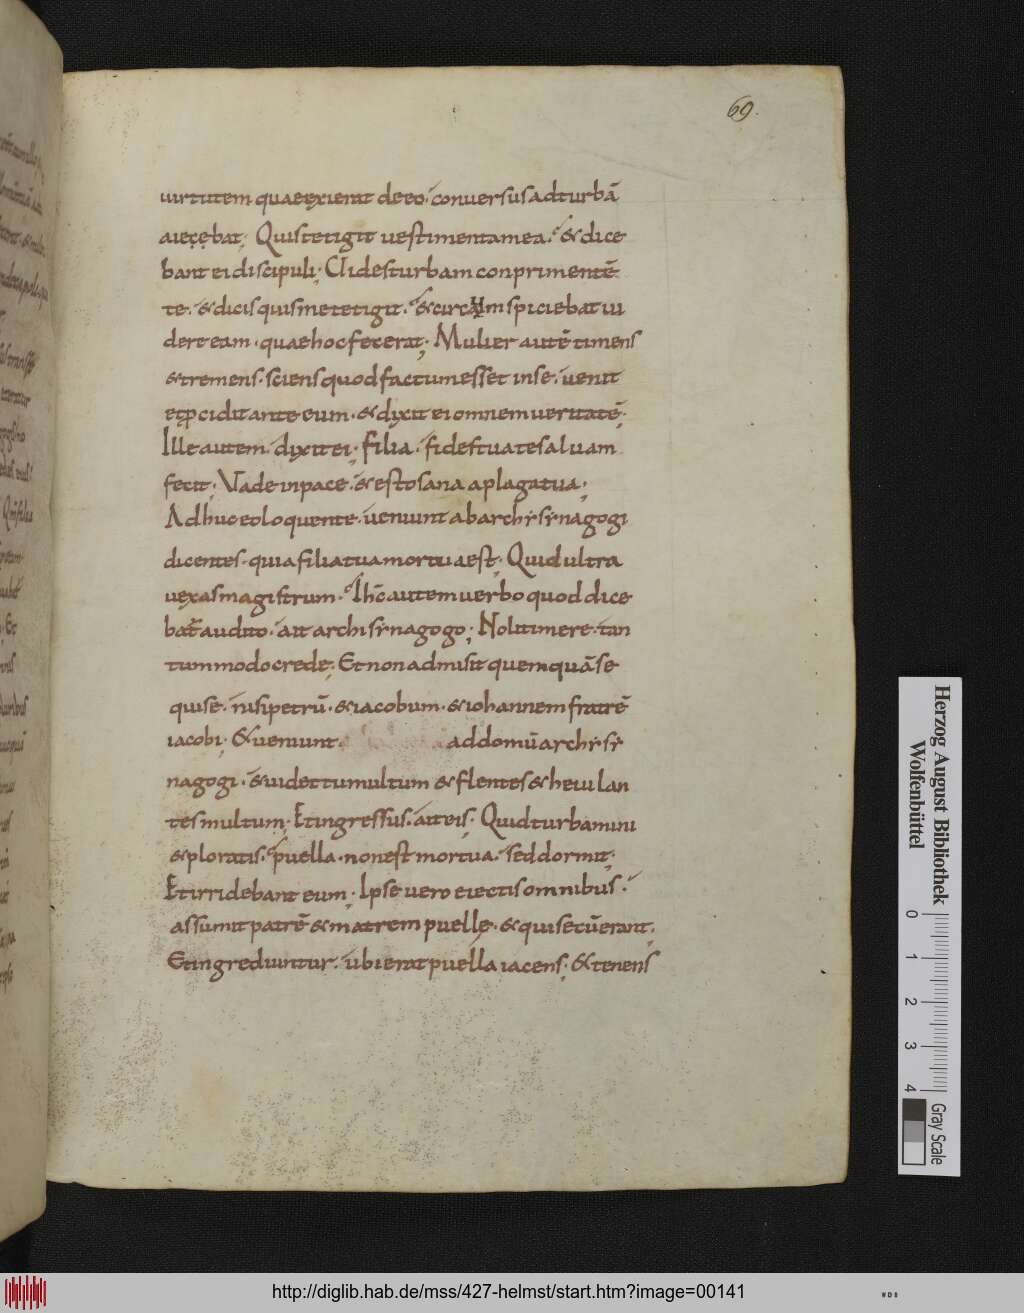 69.
uirtutem quae exierat de eo. conuersus ad turbā
aiecebat. Quis tetigit uestimenta mea. & dice
bant ei discipuli. Uides turbam conprimentē
te. & dicis quis me tetigit. & circumspiciebat ui
dere eam. quae hoc fecerat. Mulier autē timens
& tremens. sciens quod factum esset in se. uenit
et ꝓcidit ante eum. & dixit ei omnem ueritatē.
Ille autem dixit ei. Filia. fides tua te saluam
fecit. Vade in pace. & esto sana a plaga tua.
Adhuc eo loquente. ueniunt ab archẏsẏnagogi
dicentes. quia filia tua mortua est. Quid ultra
uexas magistrum. Ihc̄ autem uerbo quod dice
bat̄ audito. ait archisẏnagogo. Noli timere. tan
tummodo crede. Et non admisit quemquā se
qui se. nisi petrū. & iacobum. & iohannem fratrē
iacobi. & ueniunt. ad domū archẏsẏ
nagogi. & uidet tumultum & flentes & heiulan
tes multum. Et ingressus. ait eis. Quid turbamini
& ploratis. puella. non est mortua. sed dormit.
Et irridebant eum. Ipse uero eiectis omnibus.
assumit patrē & matrem puelle. & qui secū erant.
Et ingrediuntur. ubi erat puella iacens. & tenens
Herzog August Bibliothek
Wolfenbüttel
0 1 2 3 4
Gray Scale
http://diglib.hab.de/mss/427-helmst/start.htm?image=00141